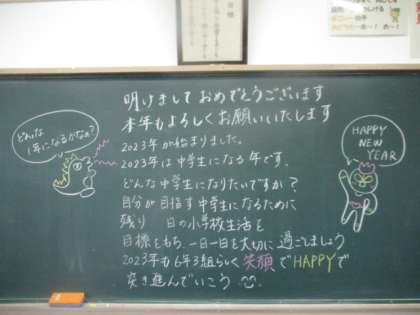 明けましておめでとうございます
本年もよろしくお願いいたします
2023年が始まりました。
2023年は中学生になる年です。
どんな中学生になりたいですか？
自分が目指す中学生になるために
残り　日の小学校生活を
目標をもち、一日一日を大切に過ごしましょう
2023年も6年3組らしく笑顔でHAPPYで
突き進んでいこう
どんな
1年になるかなぁ？
HAPPY
NEW
YEAR